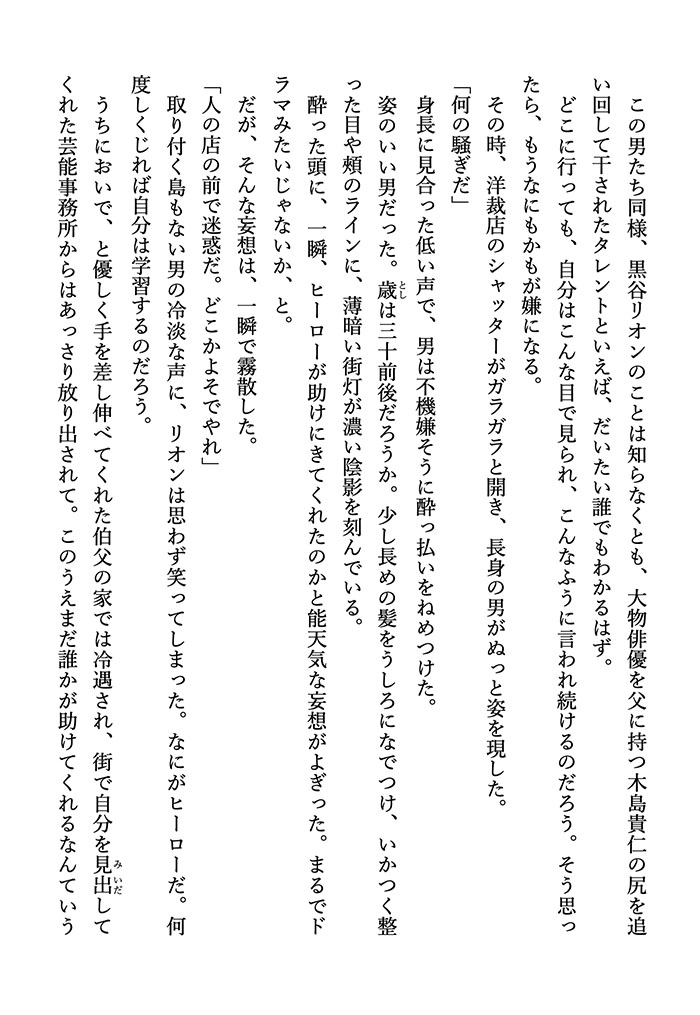 この男たち同様、黒谷リオンのことは知らなくとも、大物俳優を父に持つ木島貴仁の尻を追
い回して干されたタレントといえば、だいたい誰でもわかるはず。
どこに行っても、自分はこんな目で見られ、こんなふうに言われ続けるのだろう。そう思っ
たら、もうなにもかもが嫌になる。
その時、洋裁店のシャッターがガラガラと開き、長身の男がぬっと姿を現した。
「何の騒ぎだ」
身長に見合った低い声で、男は不機嫌そうに酔っ払いをねめつけた。
姿のいい男だった。歳としは三十前後だろうか。少し長めの髪をうしろになでつけ、いかつく整
った目や頰のラインに、薄暗い街灯が濃い陰影を刻んでいる。
酔った頭に、一瞬、ヒーローが助けにきてくれたのかと能天気な妄想がよぎった。まるでド
ラマみたいじゃないか、と。
だが、そんな妄想は、一瞬で霧散した。
「人の店の前で迷惑だ。どこかよそでやれ」
取り付く島もない男の冷淡な声に、リオンは思わず笑ってしまった。なにがヒーローだ。何
度しくじれば自分は学習するのだろう。
うちにおいで、と優しく手を差し伸べてくれた伯父の家では冷遇され、街で自分を見出みいだして
くれた芸能事務所からはあっさり放り出されて。このうえまだ誰かが助けてくれるなんていう